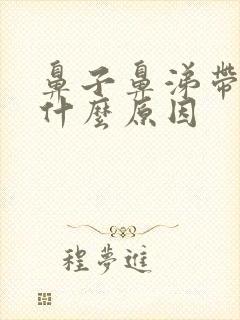 鼻子鼻涕帶
什麼原因
程夢進